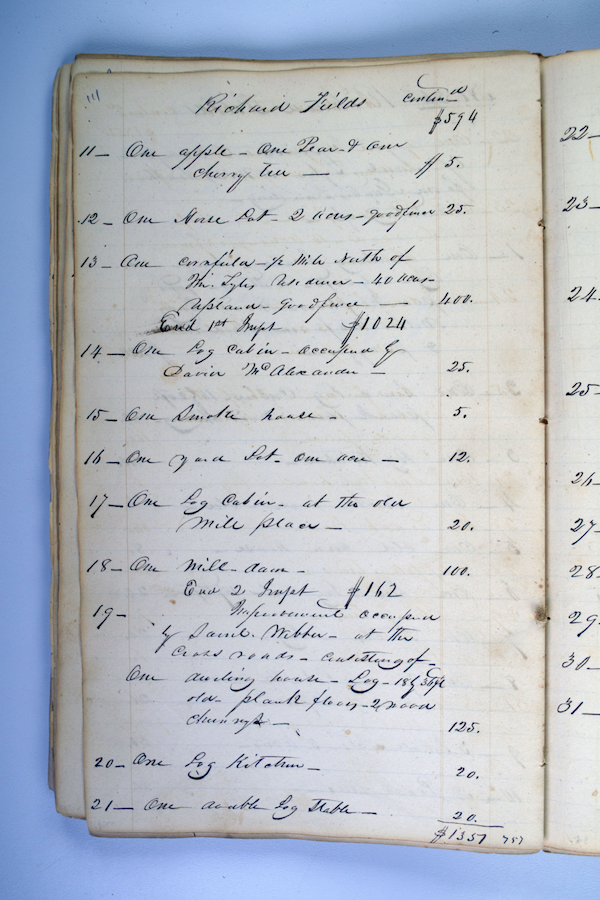 141
Richard Fields contin—d
$594
11 — One apple — One Pear & one
cherry tree — $ 5.
12 — One Horse Lot — 2 acres — good fence 25.
13 — One cornfield — ½ Mile North of
Mr. — 40 acres —
upland — good fence — 400.
End 1st Impt $1024
14 — One Log Cabin — occupied by
David McAlexander — 25.
15 — One Smoke house — 5.
16 — One yard Lot — one acre — 12.
17 — One Log Cabin — at the old
Mill place — 20.
18 — One Mill-dam — 100.
End 2 Impt $162
19 — Improvement occupied
by Saml. Webber — at the
Cross roads — consisting of —
One dwelling house — Log — 18 by 36 ft
old — plank floors — 2 wood
chimnys — 125.
20 — One Log Kitchen — 20.
21 — One double Log Stable — 20.
$1351 757
22 —
23 —
24.
25 —
26 —
27 —
28 —
29 —
30 —
31 —